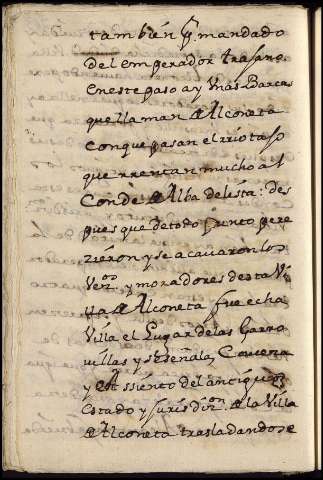 tambien p mandado
del emperador trajano.
En este paso ay Vnas Barcas
que llaman de Alconeta
con que pasan el rrio tajo
que rrentan mucho al
Conde de Alba de lista: des
pues que de todo punto pere
zieron y se acauaron los
Vez.os y moradores desta Vi
lla de Alconeta fue echa
Villa el Lugar de las Garro
uillas y se señala, Cauera
y Assiento del antiguo
estado y Jurisdi.on de la Villa
de Alconeta trasladandose